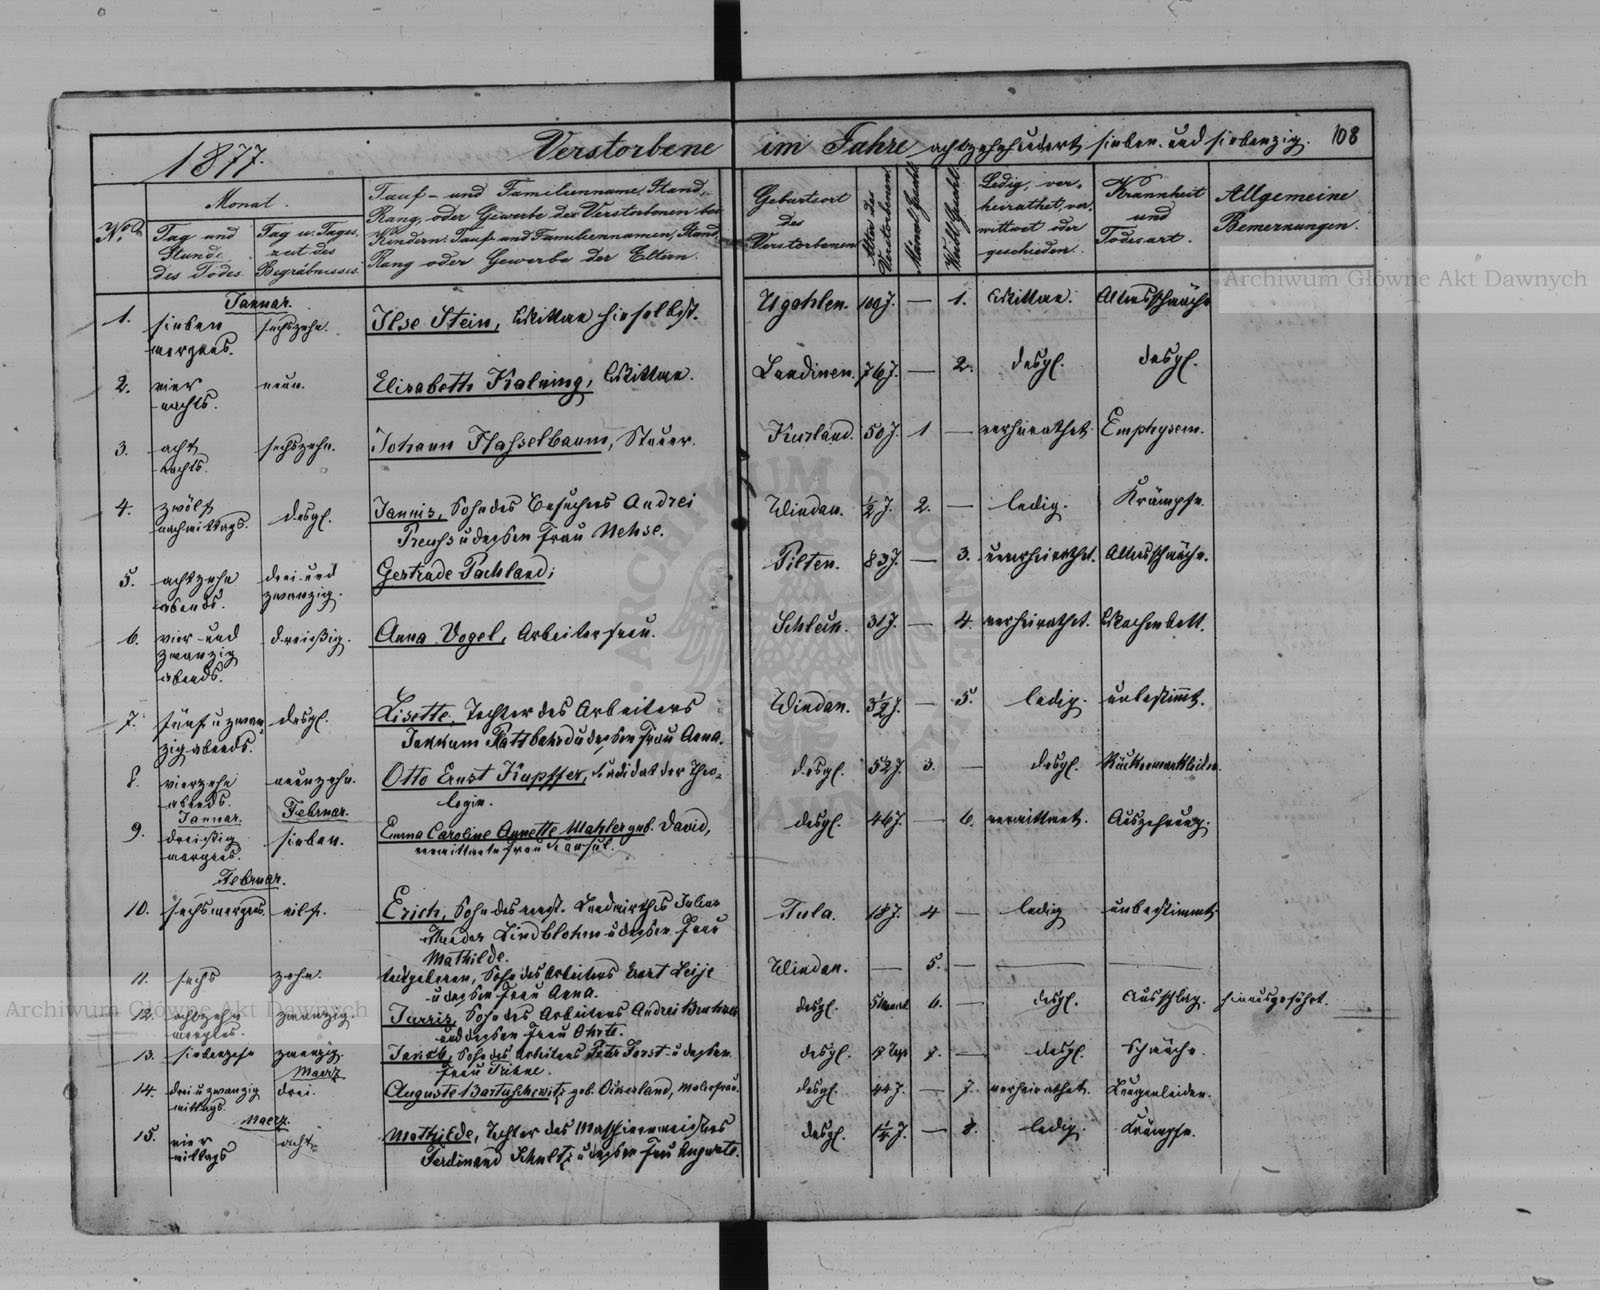 1877.
Verstorbene im Jahre achtzehnhundert sieben und siebenzig. 108
No.
Monat.
Tag und Stunde des Todes.
Tag u. Tageszeit des Begräbnisses.
Tauf- und Familienname, Stand,
Rang, oder Gewerbe des Verstorbenen bei
Kindern: Tauf- und Familiennamen, Stand
Rang oder Gewerbe der Eltern.
Geburtsort
des
Verstorbenen
Alter des Verstorbenen
Männl. Geschl.
Weibl. Geschl.
Ledig, ver-
heirathet, ver-
wittwet oder
geschieden.
Krankheit
und
Todesart.
Allgemeine
Bemerkungen.
Januar.
1. sieben sechszehn. Ilse Stein, Wittwe hieselbst. 100 J. — 1. Wittwe. Altersschwäche
morgens.
2. vier neun. Elisabeth Kalning, Wittwe. Landinen. 76 J. — 2. desgl. desgl.
nachts.
3. acht sechszehn. Johann Hasselbaum, Kurland. 50 J. 1 — verheirathet. Emphysem.
nachts.
4. zwölf desgl. Jannis, Sohn des Besuchers Andrei Windau. ½ J. 2. — ledig. Krämpfe.
nachmittags. Preuss u dessen Frau
5. achtzehn drei und Gertrude Pachland; Pilten. 83 J. — 3. unverheirathet. Altersschwäche.
abends. zwanzig.
6. vier und dreißig. Anna Vogel, Arbeiterfrau. Schleck. 31 J. — 4. verheirathet. Wochenbett.
zwanzig
abends.
7. fünf u zwan- desgl. Lisette, Tochter des Arbeiters Windau. 3½ J. — 5. ledig. unbestimmt.
zig abends. u dessen Frau Anna.
8. vierzehn neunzehn. Otto Ernst Kupffer, Kandidat der Theo- desgl. 52 J. 3. — desgl. Rückenmarkleiden.
abends. logie.
Januar. Februar.
9. dreißig sieben. Emma Caroline Annette Mahler geb. David, desgl. 46 J. — 6. verwittwet. Auszehrung.
morgens. verwittwete Frau Consul.
Februar.
10. sechs morgens. eilf. Erich, Sohn des verst. Landwirthes Julius Tula. 18 J. 4 — ledig unbestimmt.
Lindblohm u dessen Frau
Mathilde.
11. sechs zehn. todtgeboren, Sohn des Arbeiters Evert Leije Windau. — 5. — — —
u dessen Frau Anna.
12. achtzehn zwanzig. Jurris, Sohn des Arbeiters Andrei desgl. 5 Monat. 6. — desgl. Ausschlag. hinausgeführt.
morgens. und dessen Frau
13. siebenzehn zwanzig. Janob, Sohn des Arbeiters desgl. — desgl. Schwäche.
Frau Trine.
Maerz
14. drei u zwanzig drei. Auguste Bartuschewitz geb. Oikerland, desgl. 44 J. — 7. verheirathet. Lungenleiden.
mittags.
Maerz.
15. vier acht Mathilde, Tochter des Maschienenmeisters desgl. 1¼ J. — 8. ledig. Krämpfe.
mittags Ferdinand Schultz u dessen Frau Auguste.
Archiwum Główne Akt Dawnych
Archiwum Główne Akt Dawnych